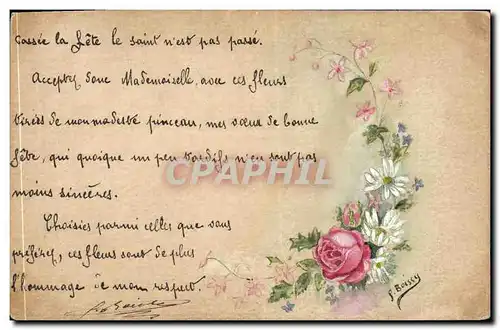 Passée la fête le saint n'est pas passé.
Acceptez donc Mademoiselle, avec ces fleurs
tirées de mon modeste pinceau, mes vœux de bonne
fête, qui quoique un peu tardifs n'en sont pas
moins sincères.
Choisies parmi celles que vous
préférez, ces fleurs sont de plus
l'hommage de mon respect.
J. Boissy
CPARAMA.COM